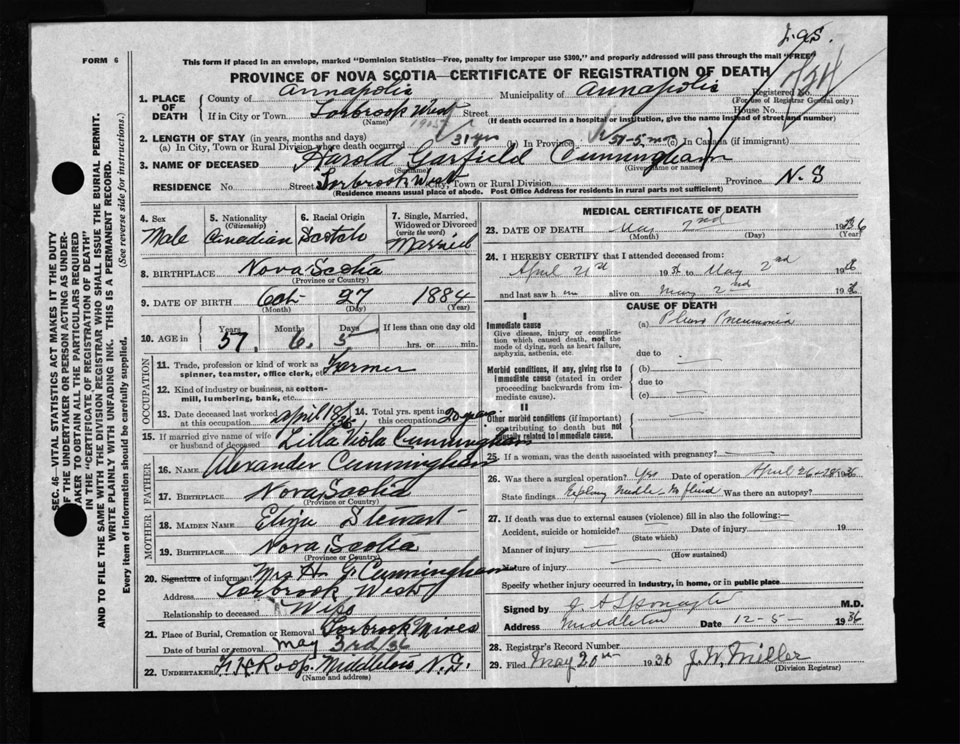 J.a.S.
FORM 6
This form if placed in an envelope, marked "Dominion Statistics—Free, penalty for improper use $300," and properly addressed will pass through the mail "FREE"
PROVINCE OF NOVA SCOTIA—CERTIFICATE OF REGISTRATION OF DEATH
1. PLACE OF DEATH County of Annapolis Municipality of Annapolis Registered No.
(For use of Registrar General only)
If in City or Town Torbrook West Street House No.
(Name) (If death occurred in a hospital or institution, give the name instead of street and number)
2. LENGTH OF STAY (in years, months and days)
(a) In City, Town or Rural Division where death occurred 31 yrs In Province 51-5 mo (c) In Canada (if immigrant)
3. NAME OF DECEASED Harold Garfield Cunningham
(Surname) (Given name or names)
RESIDENCE No. Street Torbrook West City, Town or Rural Division Province N.S
(Residence means usual place of abode. Post Office Address for residents in rural parts not sufficient)
4. Sex Male
5. Nationality (Citizenship) Canadian
6. Racial Origin Scotch
7. Single, Married, Widowed or Divorced (write the word) Married
8. BIRTHPLACE Nova Scotia
(Province or Country)
9. DATE OF BIRTH Oct 27 1884
(Month) (Day) (Year)
10. AGE in Years 57 Months 6 Days 5 If less than one day old hrs. or min.
OCCUPATION
11. Trade, profession or kind of work as spinner, teamster, office clerk, etc. Farmer
12. Kind of industry or business, as cotton-mill, lumbering, bank, etc.
13. Date deceased last worked at this occupation April 18/36 14. Total yrs. spent in this occupation 20 years
15. If married give name of wife or husband of deceased Lilla Viola Cunningham
FATHER
16. NAME Alexander Cunningham
17. BIRTHPLACE Nova Scotia
(Province or Country)
MOTHER
18. MAIDEN NAME Eliza Stewart
19. BIRTHPLACE Nova Scotia
(Province or Country)
20. Signature of informant Mrs H. G. Cunningham
Address Torbrook West
Relationship to deceased Wife
21. Place of Burial, Cremation or Removal Torbrook Mines
Date of burial or removal May 3rd/36
22. UNDERTAKER F. H. Roop. Middleton N.S.
(Name and address)
MEDICAL CERTIFICATE OF DEATH
23. DATE OF DEATH May 2nd 1936
(Month) (Day) (Year)
24. I HEREBY CERTIFY that I attended deceased from:
April 21st 1936 to May 2nd 1936
and last saw him alive on May 2nd 1936
CAUSE OF DEATH
I
Immediate cause
Give disease, injury or complication which caused death, not the mode of dying, such as heart failure, asphyxia, asthenia, etc.
(a) Pleuro Pneumonia
due to
Morbid conditions, if any, giving rise to immediate cause (stated in order proceeding backwards from immediate cause).
(b)
due to
(c)
II
Other morbid conditions (if important) contributing to death but not causally related to immediate cause.
25. If a woman, was the death associated with pregnancy?
26. Was there a surgical operation? Yes Date of operation April 26 + 28 1936
State findings Explory Needle No fluid Was there an autopsy?
27. If death was due to external causes (violence) fill in also the following:—
Accident, suicide or homicide? Date of injury 19
(State which)
Manner of injury
(How sustained)
Nature of injury
Specify whether injury occurred in industry, in home, or in public place
Signed by M.D.
Address Middleton Date 12-5- 1936
28. Registrar's Record Number
29. Filed May 20th 1936 J. W. Miller
(Division Registrar)
SEC. 46—VITAL STATISTICS ACT MAKES IT THE DUTY
OF THE UNDERTAKER OR PERSON ACTING AS UNDER-
TAKER TO OBTAIN ALL THE PARTICULARS REQUIRED
IN THE "CERTIFICATE OF REGISTRATION OF DEATH"
AND TO FILE THE SAME WITH THE DIVISION REGISTRAR WHO SHALL ISSUE THE BURIAL PERMIT.
WRITE PLAINLY WITH UNFADING INK. THIS IS A PERMANENT RECORD.
Every item of information should be carefully supplied. (See reverse side for instructions.)